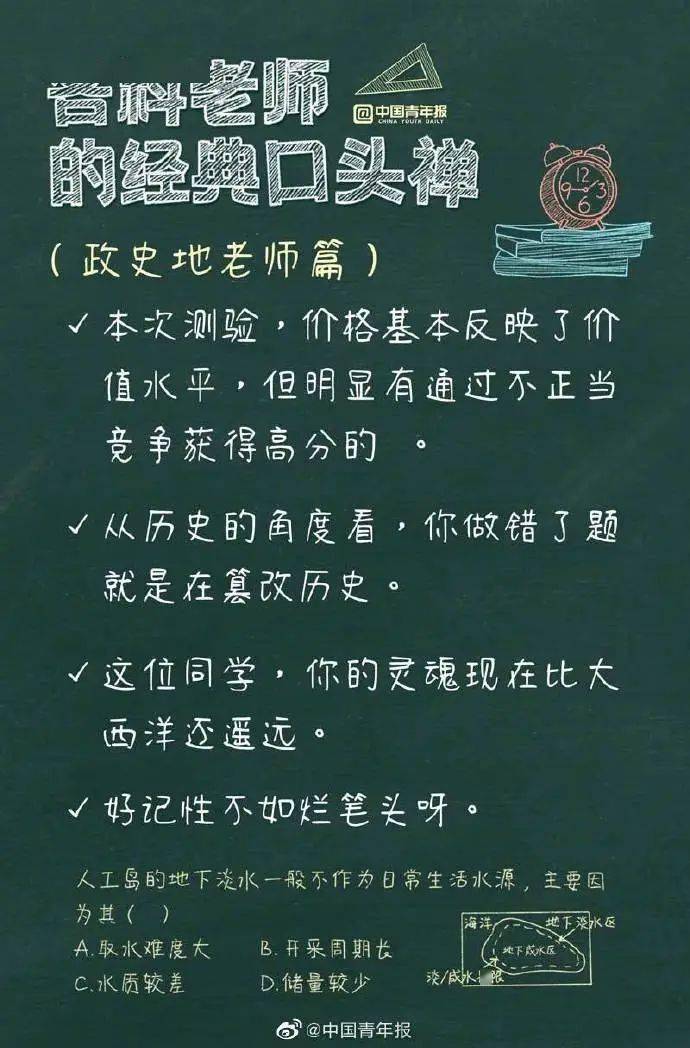 各科老师
的经典口头禅
@中国青年报
CHINA YOUTH DAILY
12
9 3
6
(政史地老师篇)
✓本次测验，价格基本反映了价
值水平，但明显有通过不正当
竞争获得高分的 。
✓从历史的角度看，你做错了题
就是在篡改历史。
✓这位同学，你的灵魂现在比大
西洋还遥远。
✓好记性不如烂笔头呀。
人工岛的地下淡水一般不作为日常生活水源，主要因
为其( )
A.取水难度大 B.开采周期长
C.水质较差 D.储量较少
海洋 地下淡水区
地下咸水区
淡/咸水 限
@中国青年报